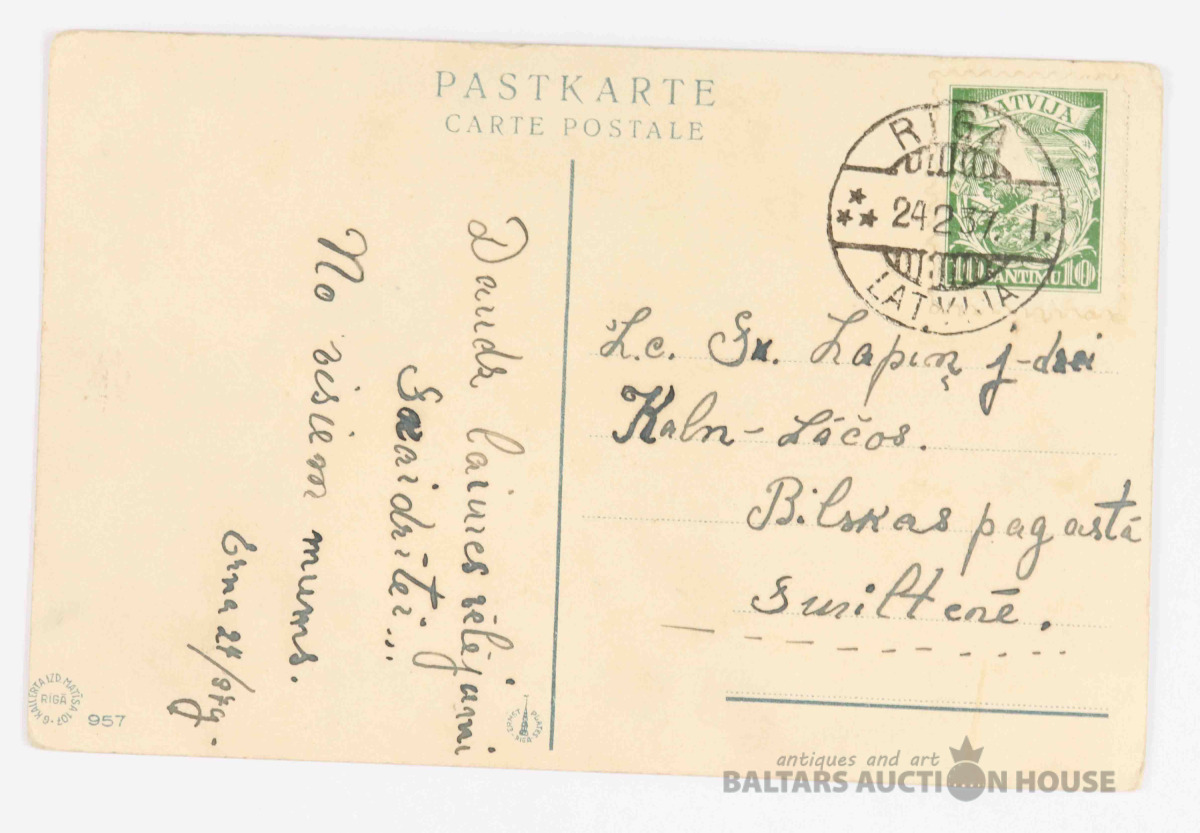 PASTKARTE
CARTE POSTALE
LATVIJA
10 SANTIMU 10
RIGA
24 2 37. 1.
LATVIJA
Daudz laimes vēlējumi
Skaidrītei...
No visiem mums.
Erna 24/
Ļ.c. Lapiņ j-dzei
Kaln - Lāčos.
Bilskas pagastā
Smiltenē.
G. KALLERTA IZD. MATĪSA 107
RIGĀ
957
antiques and art
BALTARS AUCTION HOUSE